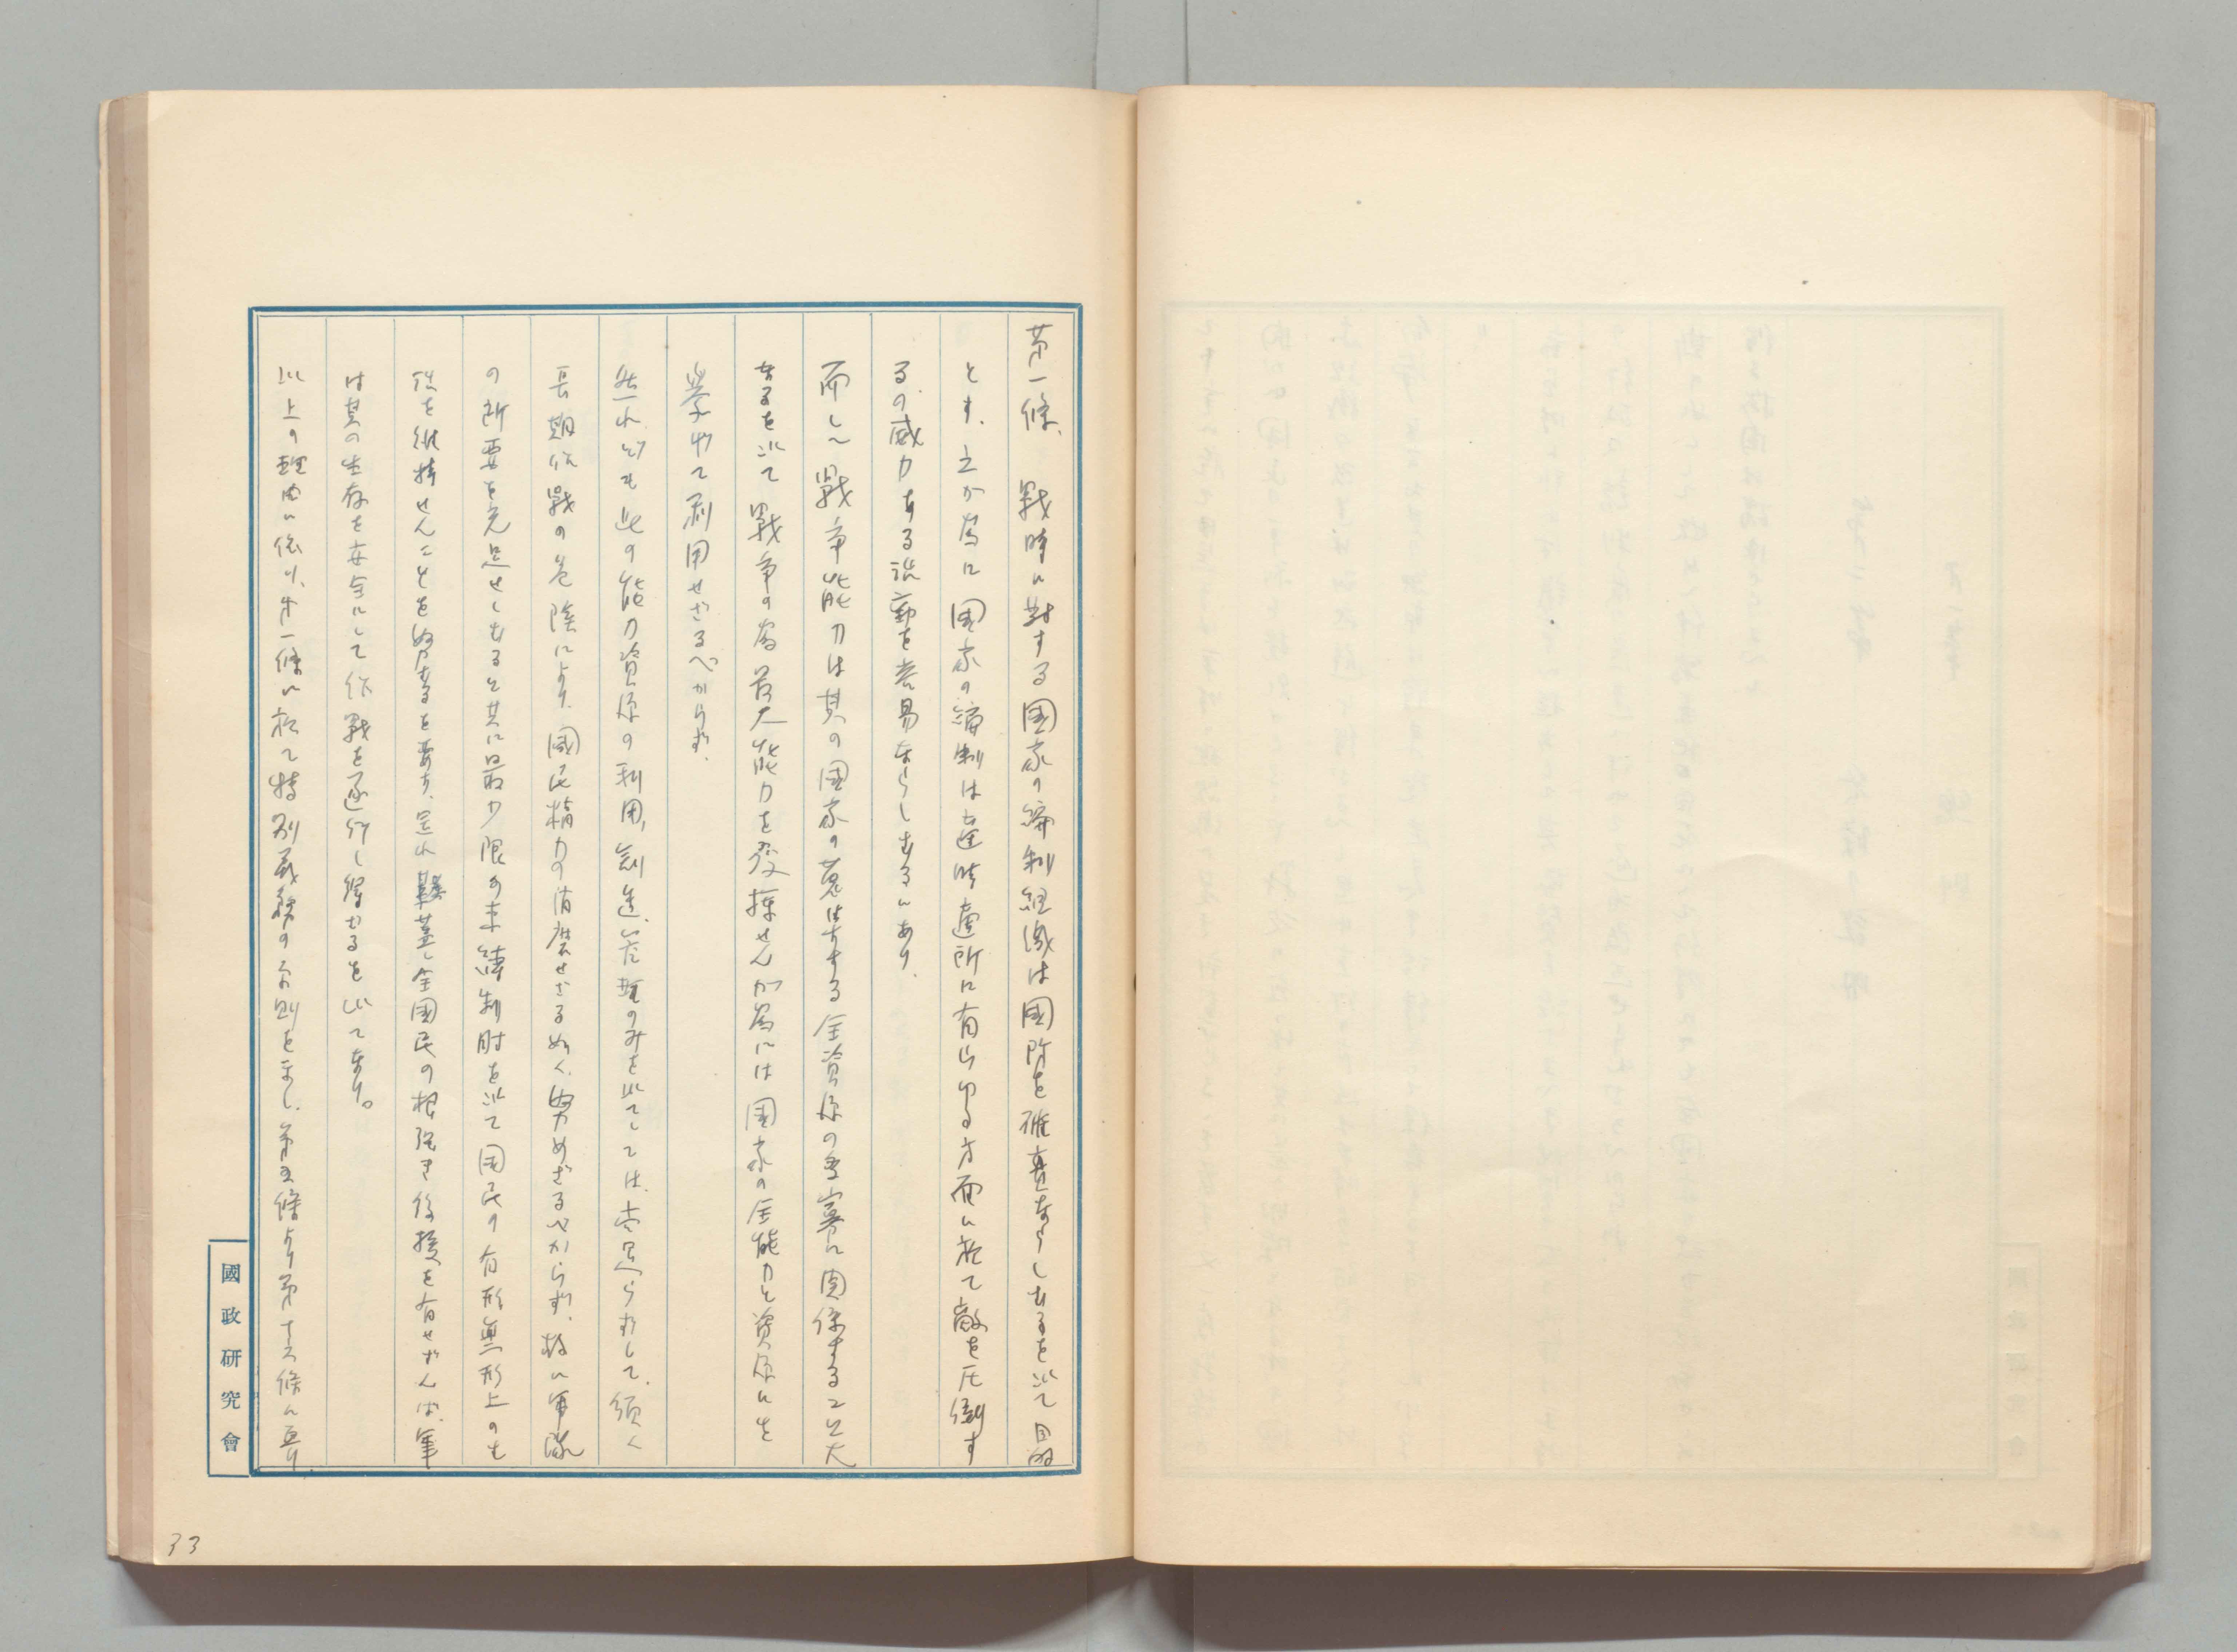 第一條、戰時に對する国家の編制組織は國防を確真ならしむるを以て目的
とす、之か為に国家の編制は適時適所に有らゆる方面に於て敵を圧倒す
るの威力ある活動を容易ならしむるにあり、
而して戰争能力は其の国家の蒐集する全資源の多寡に関係すること大
なるを以て戰争の為最大能力を發揮せんか為には国家の全能力と資源とを
挙けて利用せざるべからず、
然れども此の能力資源の利用、創造、管理のみを以てしては尚足らずして、須く
長期作戰の
國民精力の消磨せざる如く、努めざるべからず、故に軍隊
の所要を充足せしむると共に最少限の
制肘を以て国民の有形無形上の
を維持せんことを努むるを要す、是れ
蓋し全國民の根強き後援を有せずんば、軍
は其の生存を安全にして作戰を遂行し得ざるを以てなり。
以上の理由に依り、第一條に於て特別義務の原則を示し、第五條より第十六條に亘り
國政研究會
33